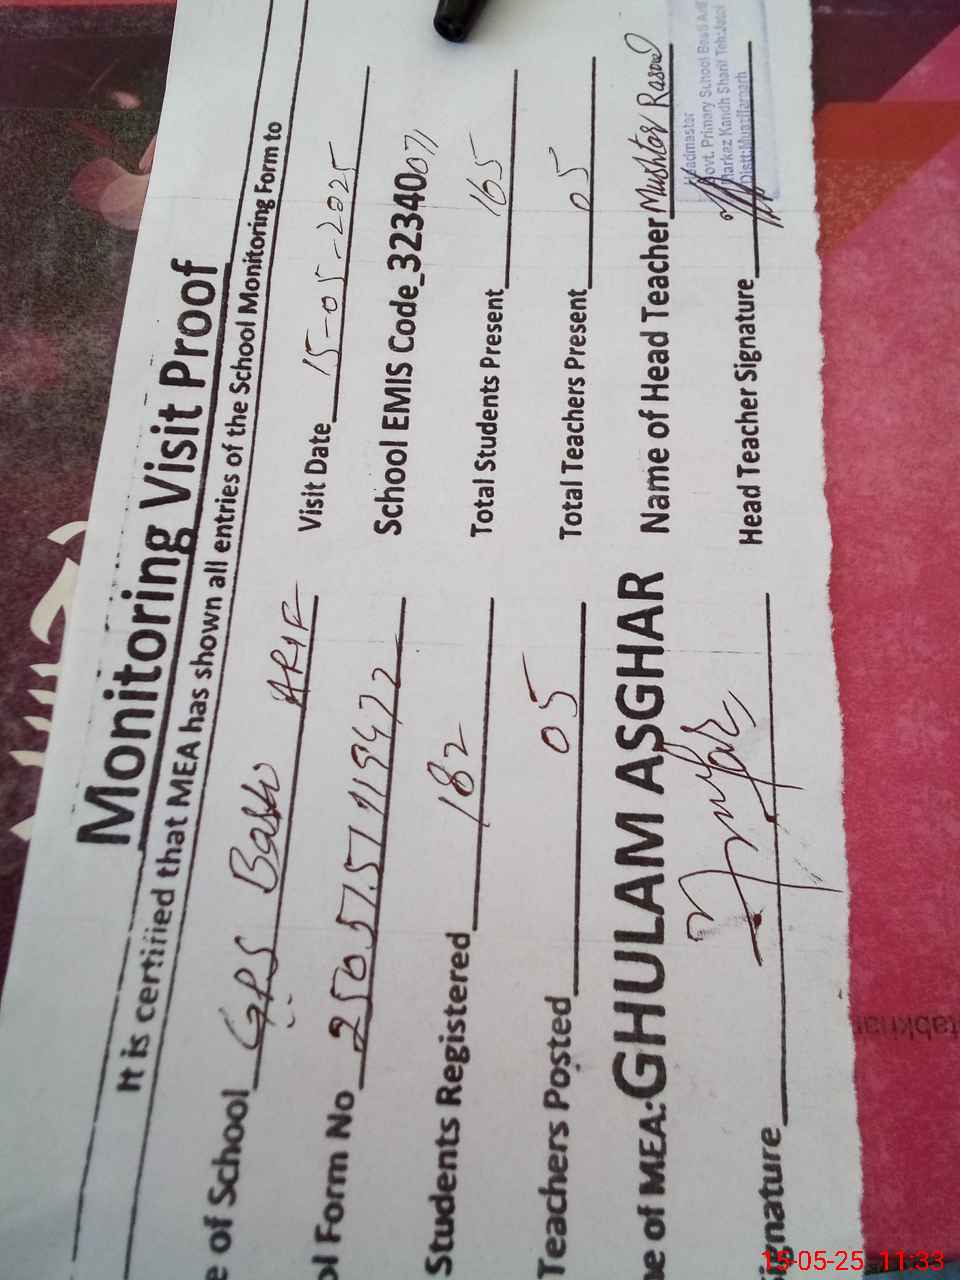 Monitoring Visit Proof
It is certified that MEA has shown all entries of the School Monitoring Form to
e of School GPS Basti ARIF Visit Date 15-05-2025
ol Form No School EMIS Code_32340071
Students Registered 182 Total Students Present 165
Teachers Posted 05 Total Teachers Present 05
ne of MEA: GHULAM ASGHAR Name of Head Teacher Mushtaq Rasool
Signature Head Teacher Signature
Headmaster
Govt. Primary School Basti Arif
Markaz Kandh Sharif Teh:Jatoi
Distt:Muzaffargarh
15-05-25 11:33